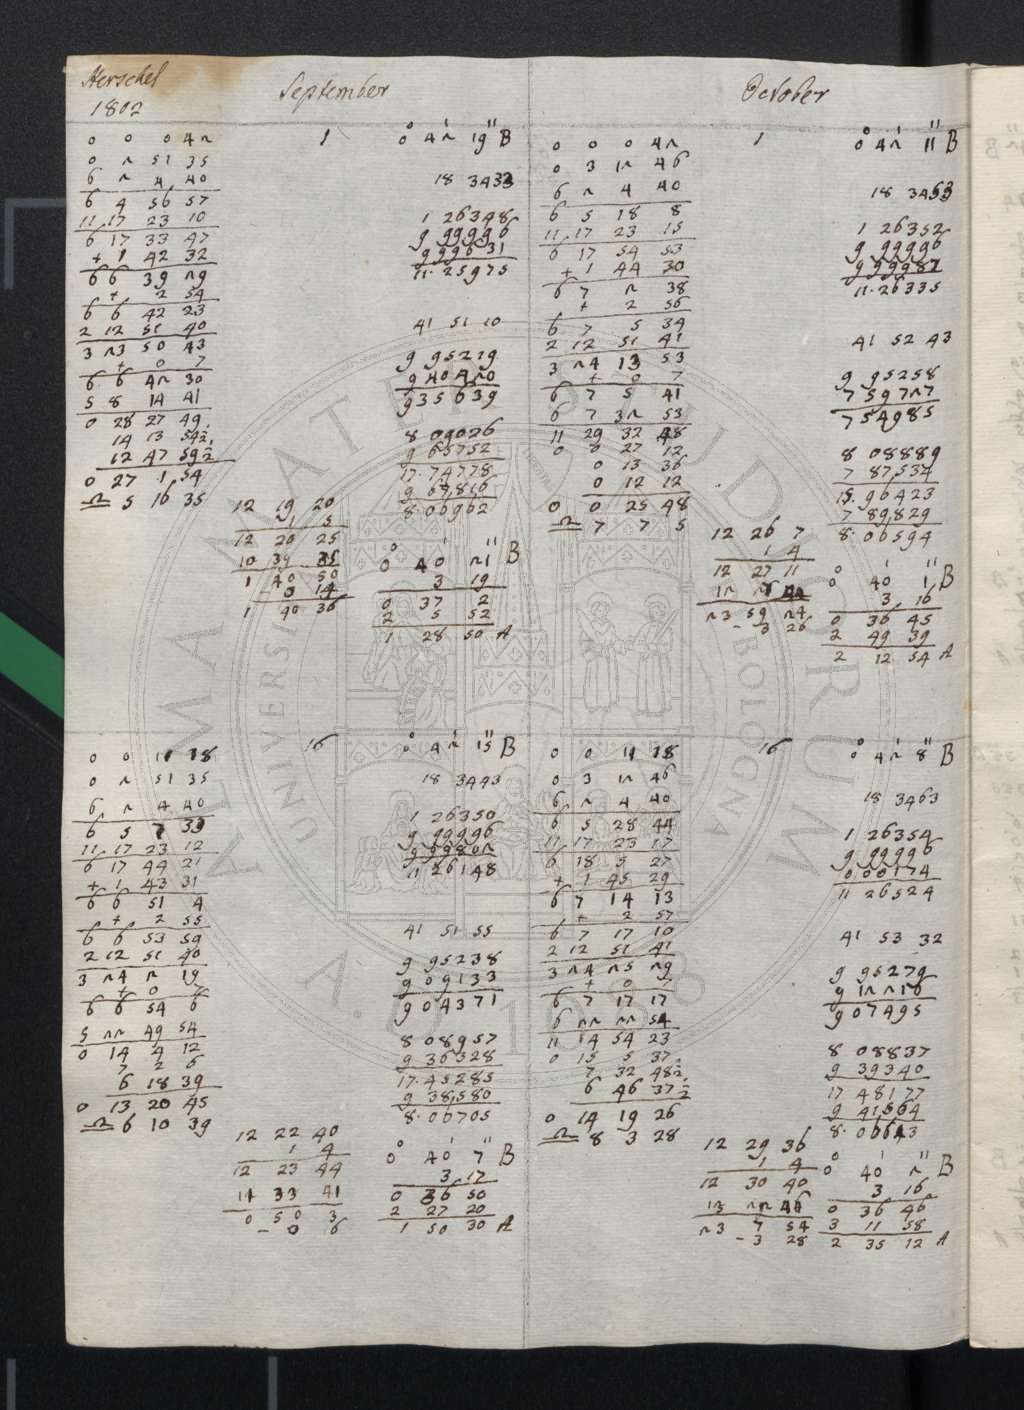 Herschel
1802
September
0 0 0 42
0 2 51 35
6 2 4 40
6 4 56 57
11 17 23 10
6 17 33 47
+ 1 42 32
6 6 39 29
+ 2 54
6 6 42 23
2 12 51 40
3 23 50 43
+ 0 7
6 6 42 30
5 8 14 41
0 28 27 49
14 13 54½
12 47 59½
0 27 1 54
♎ 5 16 35
1
12 19 20
1 5
12 20 25
10 39 35
1 40 50
- 0 14
1 40 36
0° 42' 19'' B
18 3433
1 26348
9 99996
9 99631
11.25975
41 51 10
9 95219
9 40420
9 35639
8 09026
9 65752
17.74778
9 67,816
8 06962
0° 40' 21'' B
3 19
0 37 2
2 5 52
1 28 50 A
October
0 0 0 42
0 3 12 46
6 2 4 40
6 5 18 8
11 17 23 15
6 17 54 53
+ 1 44 30
6 7 2 38
+ 2 56
6 7 5 34
2 12 51 41
3 24 13 53
+ 0 7
6 7 5 41
6 7 32 53
11 29 32 48
0 0 27 12
0 13 36
0 12 12
0 0 25 48
♎ 7 7 5
1
12 26 7
1 4
12 27 11
12 27 47
23 59 24
- 3 26
0° 42' 11'' B
18 3453
1 26352
9 99996
9 99987
11.26335
41 52 43
9 95258
7 59727
7 54985
8 08889
7 87,534
15.96423
7 89,829
8 06594
0° 40' 1'' B
3 16
0 36 45
2 49 39
2 12 54 A
0 0 11 18
0 2 51 35
6 2 4 40
6 5 7 33
11 17 23 12
6 17 44 21
+ 1 43 31
6 6 51 4
+ 2 55
6 6 53 59
2 12 51 40
3 24 2 19
+ 0 7
6 6 54 6
5 22 49 54
0 14 4 12
7 2 6
6 18 39
0 13 20 45
♎ 6 10 39
16
12 22 40
1 4
12 23 44
11 33 41
0 50 3
- 0 6
0° 42' 15'' B
18 3443
1 26350
9 99996
9 99802
11 26148
41 51 55
9 95238
9 09133
9 04371
8 08957
9 36328
17.45285
9 38,580
8.06705
0° 40' 7'' B
3 17
0 36 50
2 27 20
1 50 30 A
0 0 11 18
0 3 12 46
6 2 4 40
6 5 28 44
11 17 23 17
6 18 5 27
+ 1 45 29
6 7 14 13
+ 2 57
6 7 17 10
2 12 51 41
3 24 25 29
+ 0 7
6 7 17 17
6 22 22 54
11 14 54 23
0 15 5 37
7 32 48½
6 46 37½
0 14 19 26
♎ 8 3 28
16
12 29 36
1 4
12 30 40
13 22 46
23 7 54
- 3 28
0° 42' 8'' B
18 3463
1 26354
9 99996
0,00174
11 26524
41 53 32
9 95279
9 12216
9 07495
8 08837
9 39340
17 48177
9 41,564
8.06613
0° 40' 2'' B
3 16
0 36 46
3 11 58
2 35 12 A
ALMA MATER STUDIORUM
UNIVERSITÀ DI BOLOGNA
A.D. 1088